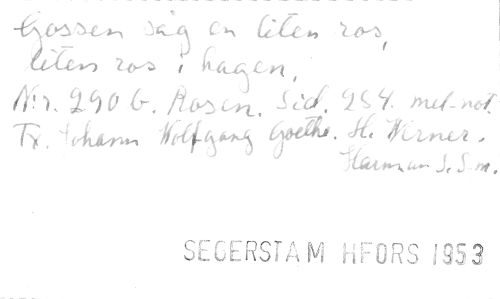 Gossen såg en liten ros,
liten ros i hagen,
N:r. 290 b. Rosen. Sid. 284. mel-not.
Tx. Johann Wolfgang Goethe. H. Werner.
S.S-m.
SEGERSTAM HFORS 1953